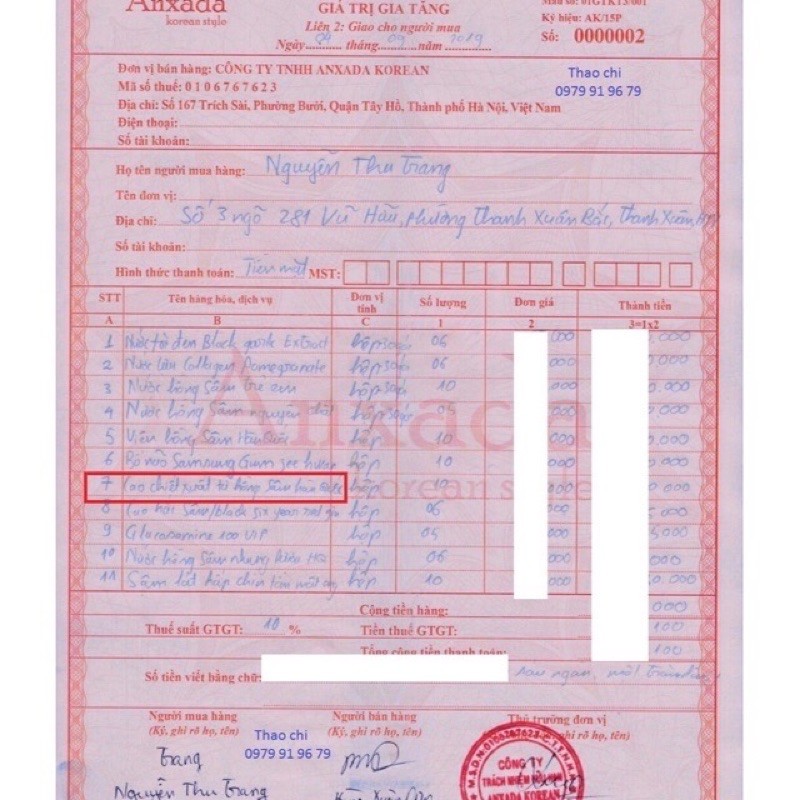 Anxada
korean style
GIÁ TRỊ GIA TĂNG
Liên 2: Giao cho người mua
Ngày 04 tháng 09 năm 2019
Mẫu số: 01GTKT3/001
Ký hiệu: AK/15P
Số: 0000002
Đơn vị bán hàng: CÔNG TY TNHH ANXADA KOREAN
Mã số thuế: 0 1 0 6 7 6 7 6 2 3
Địa chỉ: Số 167 Trích Sài, Phường Bưởi, Quận Tây Hồ, Thành phố Hà Nội, Việt Nam
Điện thoại:
Số tài khoản:
Thao chi
0979 91 96 79
Họ tên người mua hàng: Nguyễn Thu Trang
Tên đơn vị:
Địa chỉ: Số 3 ngõ 281 Vũ Hữu, phường Thanh Xuân Bắc, Thanh Xuân, HN
Số tài khoản:
Hình thức thanh toán: Tiền mặt MST:
STT Tên hàng hóa, dịch vụ Đơn vị tính Số lượng Đơn giá Thành tiền
A B C 1 2 3=1x2
1 Nước tỏi đen Black garlic Extract hộp 05 000 000
2 Nước lựu Collagen Pomegranate hộp 06 000 000
3 Nước hồng sâm trẻ em hộp 10 000 000
4 Nước hồng sâm nguyên chất hộp 05 000 000
5 Viên hồng sâm Hàn Quốc hộp 10 000 000
6 Bổ não Samsung Gum jee hwan hộp 10 000 000
7 Cao chiết xuất từ hồng sâm hàn Quốc hộp 10 000 000
8 Cao hắc sâm/black six years red hộp 06 000 000
9 Glucosamine 100 VIP hộp 05 000 000
10 Nước hồng sâm nhung hươu HQ hộp 06 000 000
11 Sâm lát hấp chín tẩm mật ong hộp 10 000 000
Cộng tiền hàng: 000
Thuế suất GTGT: 10 % Tiền thuế GTGT: 100
Tổng cộng tiền thanh toán: 100
Số tiền viết bằng chữ:
Người mua hàng
(Ký, ghi rõ họ, tên)
Trang
Nguyễn Thu Trang
Thao chi
0979 91 96 79
Người bán hàng
(Ký, ghi rõ họ, tên)
Thủ trưởng đơn vị
M.S.D.N:0106767623-C.T.T.N.H.H
CÔNG TY
TRÁCH NHIỆM HỮU HẠN
ANXADA KOREAN